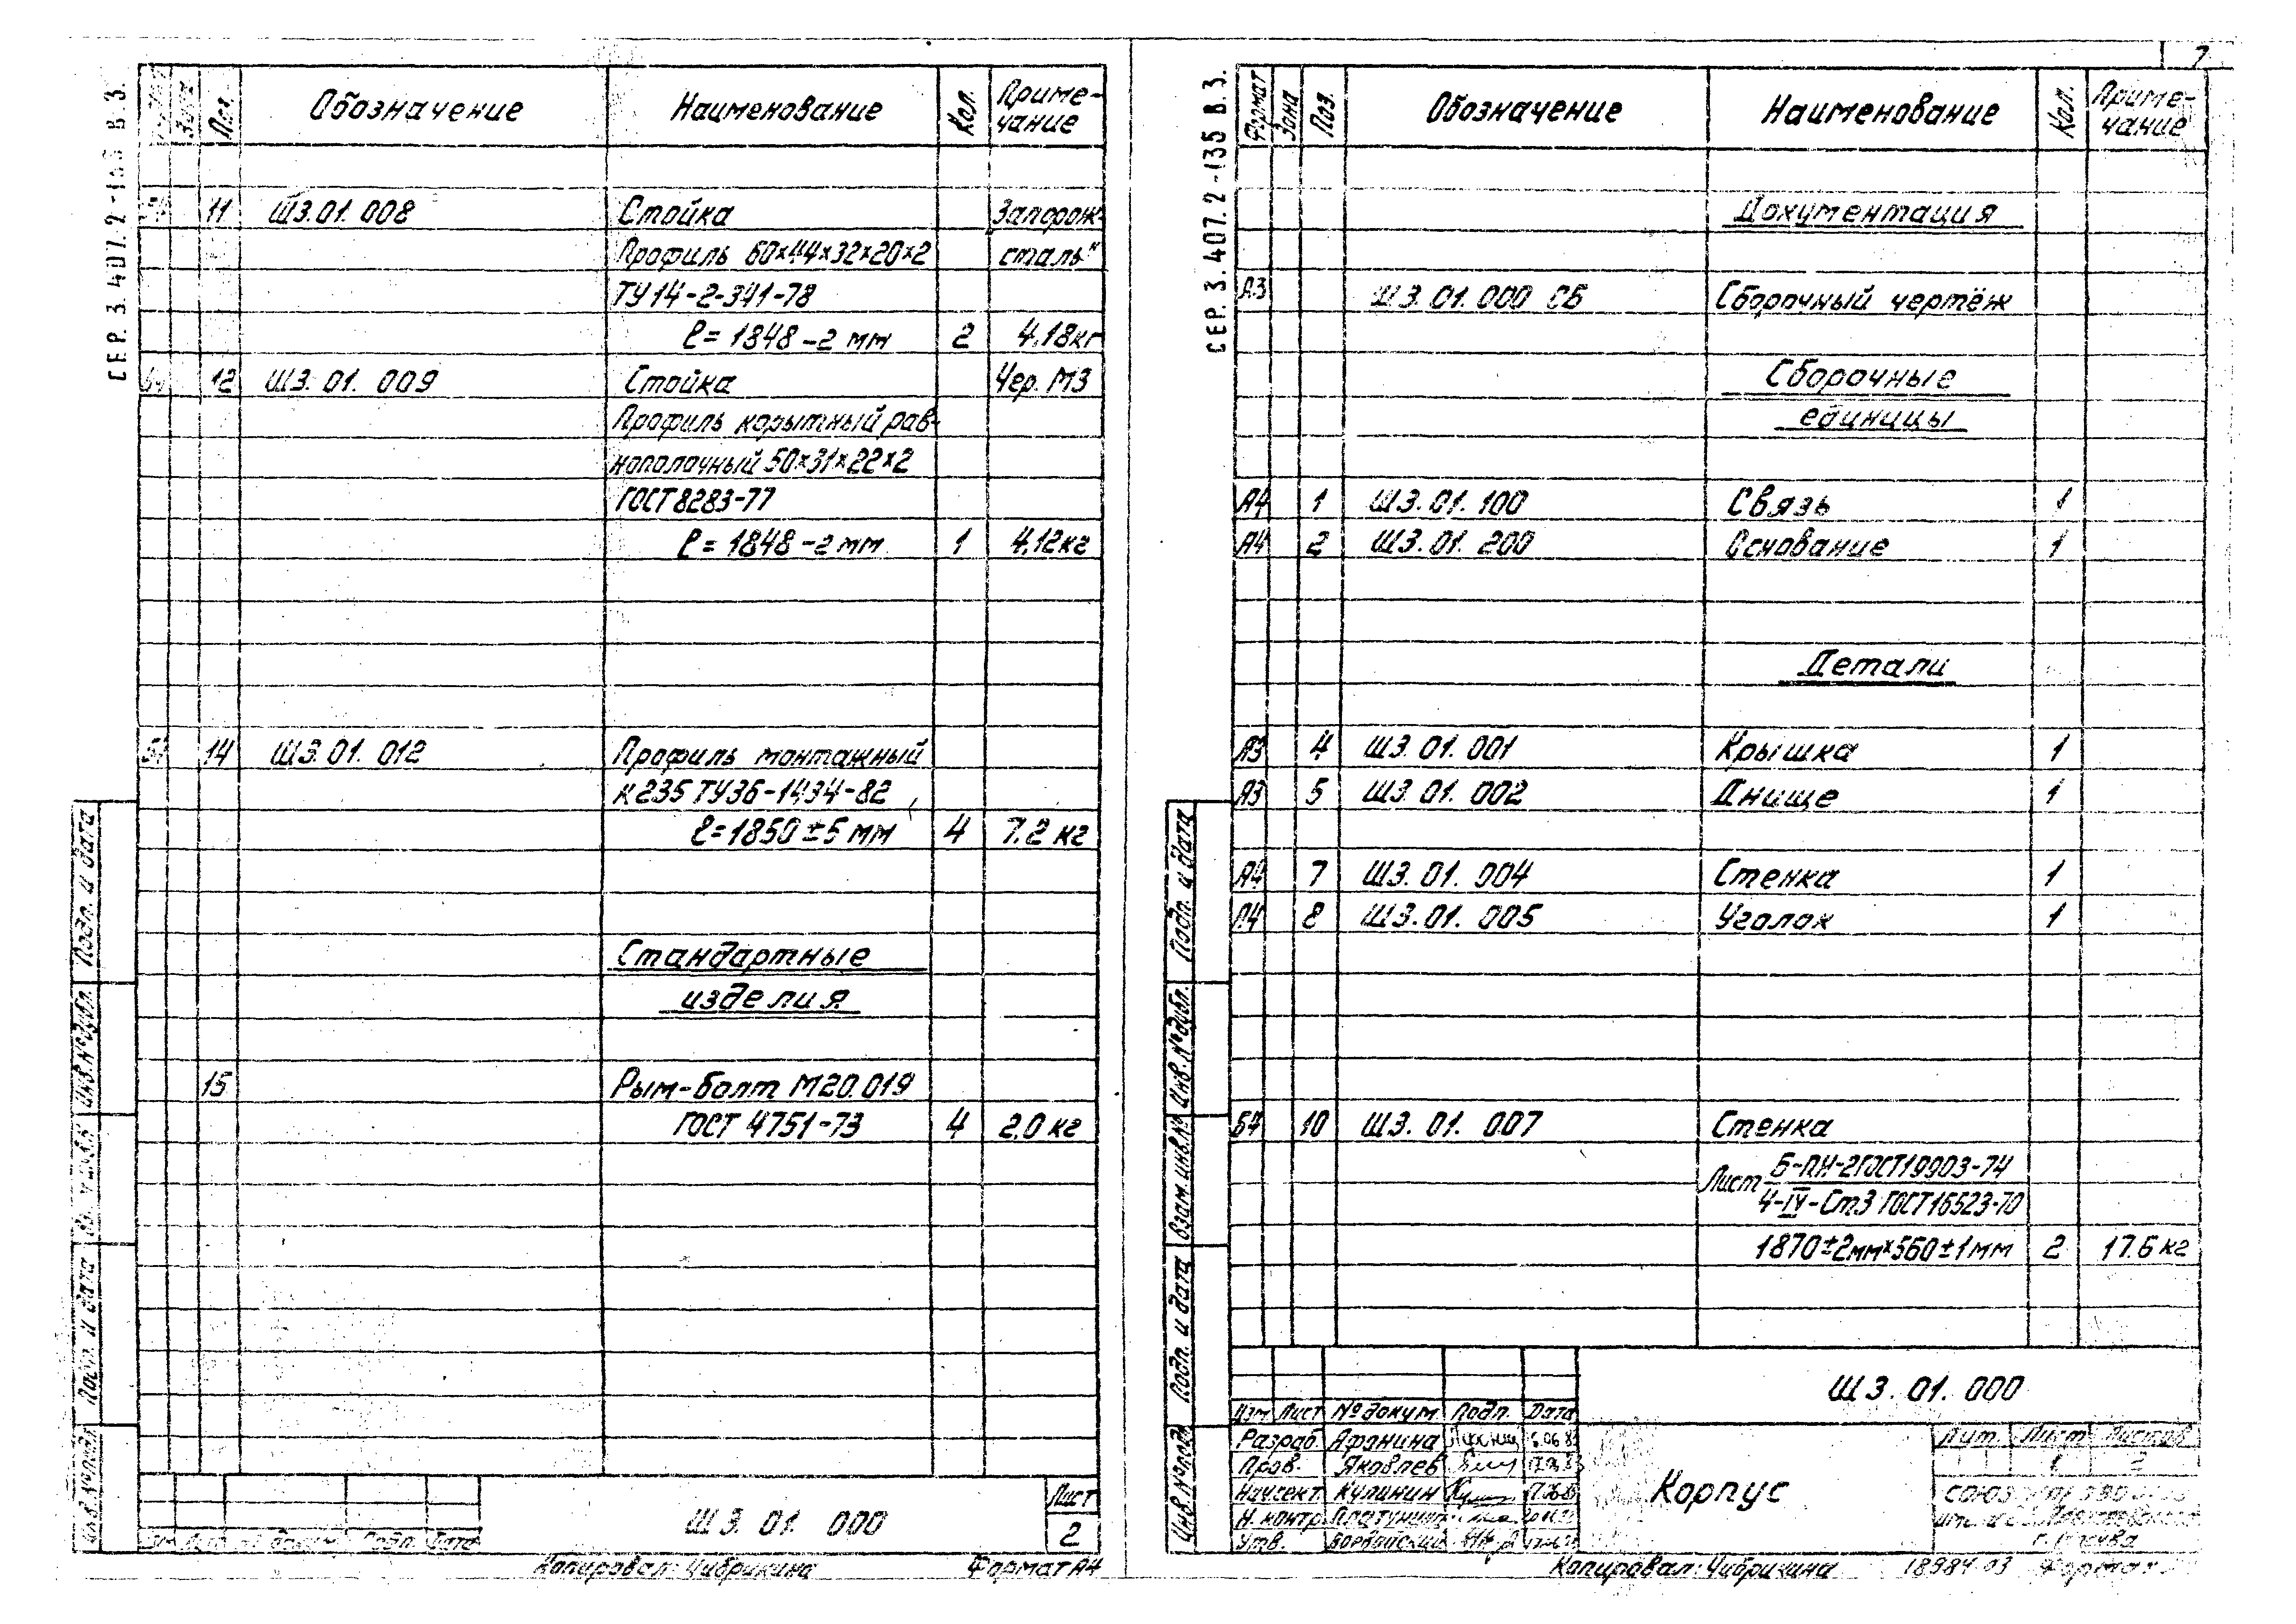 7
СЕР. 3.407.2-135 В.3.
Поз. Обозначение Наименование Кол. Приме-
чание
11 ШЗ.01.008 Стойка Запорож-
Профиль 60×44×32×20×2 сталь"
ТУ14-2-341-78
ℓ=1848-2 мм 2 4.18кг
БЧ 12 ШЗ.01.009 Стойка Чер. МЗ
Профиль корытный рав-
нополочный 50×31×22×2
ГОСТ8283-77
ℓ=1848-2 мм 1 4,12кг
БЧ 14 ШЗ.01.012 Профиль монтажный
К235 ТУ36-1434-82
ℓ=1850±5 мм 4 7.2 кг
Стандартные
изделия
15 Рым-болт М20.019
ГОСТ 4751-73 4 2.0 кг
Подп. и дата
Инв.№дубл.
Подп. и дата
Инв.№подл.
ШЗ.01.000
Лист
2
Копировал: Чибрикина Формат А4
СЕР. 3.407.2-135 В.3.
Формат Зона Поз. Обозначение Наименование Кол. Приме-
чание
Документация
А3 ШЗ.01.000 СБ Сборочный чертёж
Сборочные
единицы
А4 1 ШЗ.01.100 Связь 1
А4 2 ШЗ.01.200 Основание 1
Детали
А3 4 ШЗ.01.001 Крышка 1
А3 5 ШЗ.01.002 Днище 1
А4 7 ШЗ.01.004 Стенка 1
А4 8 ШЗ.01.005 Уголок 1
БЧ 10 ШЗ.01.007 Стенка
Лист Б-ПН-2ГОСТ19903-74
4-IV-Ст3 ГОСТ16523-70
1870±2мм×560±1мм 2 17.6 кг
Подп. и дата
Инв.№дубл.
Взам.инв.№
Подп. и дата
Инв.№подл.
ШЗ.01.000
Изм Лист №докум Подп. Дата
Разраб. Афонина
Пров. Яковлев
Нач.сект. Кулинин
Н. контр.
Утв.
Корпус
Лит. Лист Листов
1 2
г. Москва
Копировал: Чибрикина 18984-03 Формат